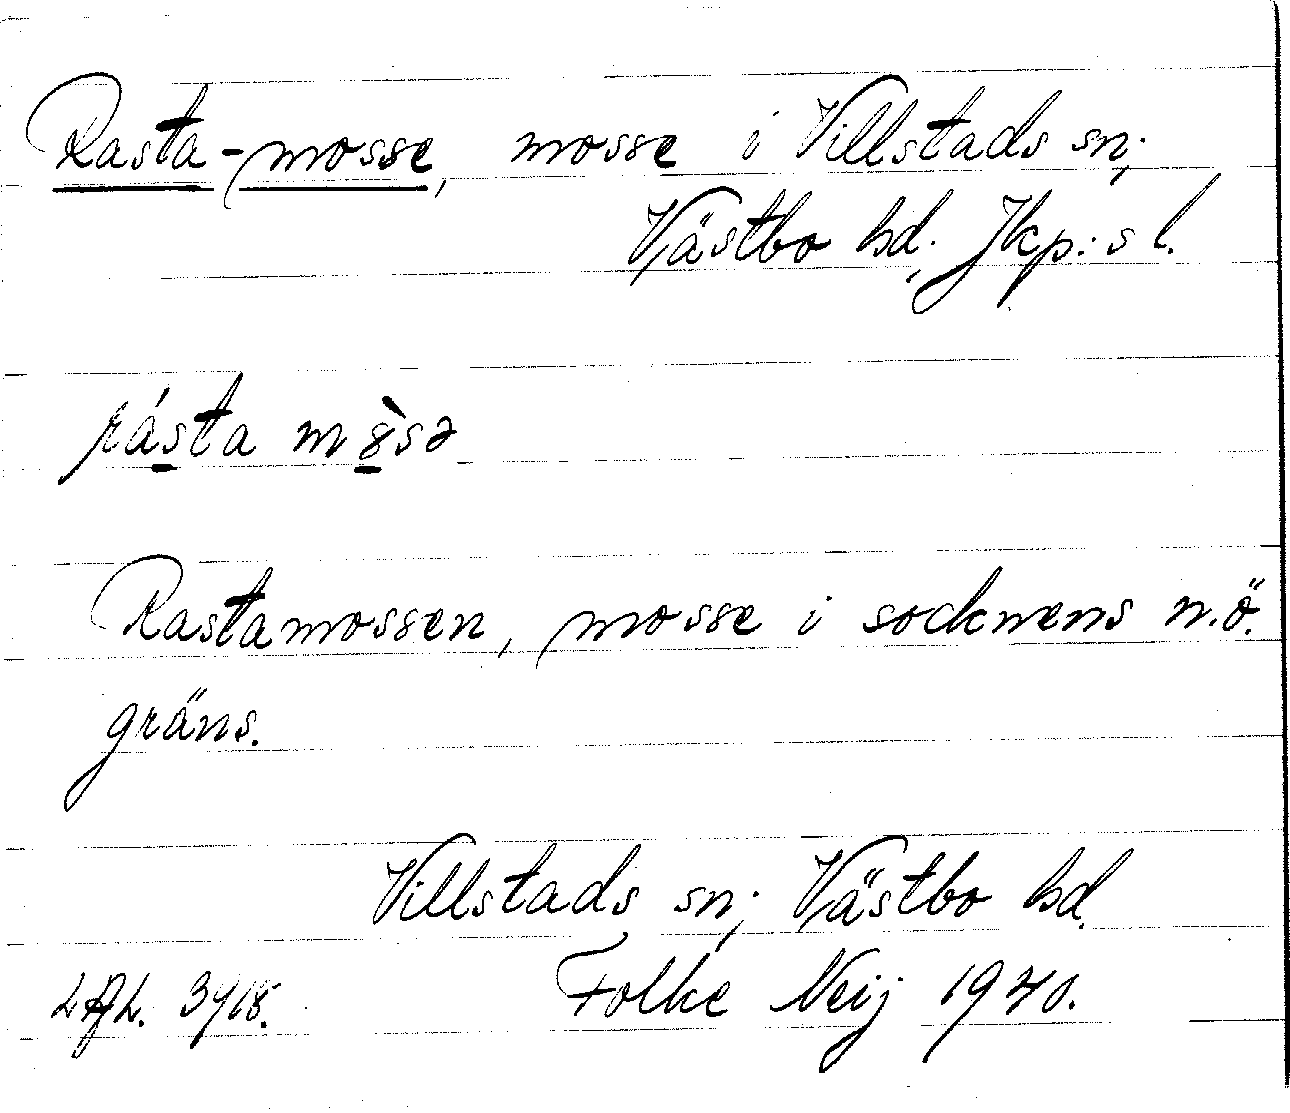 Rasta-mosse, mosse i Villstads sn;
Västbo hd. Jkp:s l.
rásta m8̀sə
Rastamossen, mosse i socknens n.ö.
gräns.
Villstads sn; Västbo hd.
Folke Neij 1940.